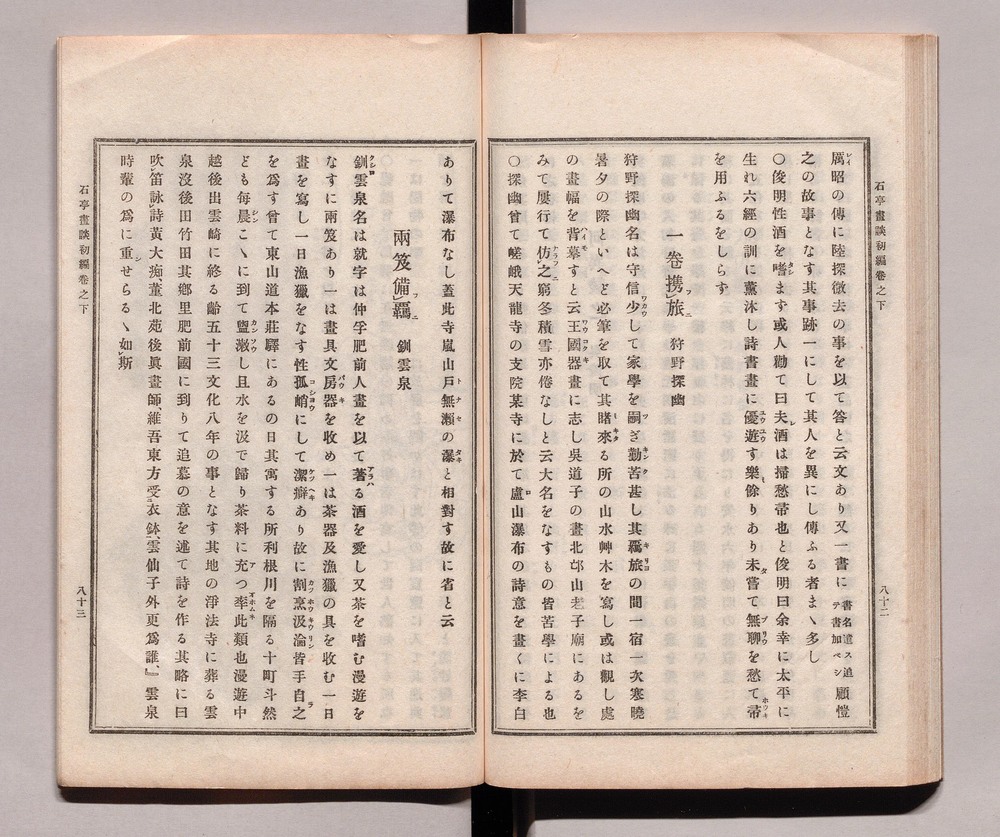 石亭畫談初編卷之下
八十二
厲昭の傳に陸探微去の事を以て答と云文あり又一書に書名遺ス追テ書加ベシ顧愷
之の故事となす其事跡一にして其人を異にし傳ふる者まゝ多し
〇俊明性酒を嗜ます或人勸て曰夫酒は掃愁帚也と俊明曰余幸に太平に
生れ六經の訓に薰沐し詩書畫に優遊す樂餘りあり未嘗て無聊を愁て帚
を用ふるをしらす
一卷携旅 狩野探幽
狩野探幽名は守信少して家學を嗣ぎ勤苦甚し其羈旅の間一宿一次寒曉
暑夕の際といへど必筆を取て其賭來る所の山水艸木を寫し或は觀し處
の畫幅を背摹すと云王國器畫に志し吳道子の畫北邙山老子廟にあるを
みて屢行て仿之窮冬積雪亦倦なしと云大名をなすもの皆苦學による也
〇探幽曾て嵯峨天龍寺の支院某寺に於て盧山瀑布の詩意を畫くに李白
ありて瀑布なし蓋此寺嵐山戸無瀨の瀑と相對す故に省と云
兩笈備羈 釧雲泉
釧雲泉名は就字は仲孚肥前人畫を以て著る酒を愛し又茶を嗜む漫遊を
なすに兩笈あり一は畫具文房器を收め一は茶器及漁獵の具を收む一日
畫を寫し一日漁獵をなす性孤峭にして潔癖あり故に割烹汲淪皆手自之
を爲す曾て東山道本莊驛にあるの日其寓する所利根川を隔る十町斗然
ども每晨こゝに到て盥漱し且水を汲で歸り茶料に充つ率此類也漫遊中
越後出雲崎に終る齡五十三文化八年の事となす其地の淨法寺に葬る雲
泉沒後田竹田其鄕里肥前國に到りて追慕の意を述て詩を作る其略に曰
吹笛詠詩黃大痴、董北苑後眞畫師、維吾東方受衣鉢、雲仙子外更爲誰、』雲泉
時輩の爲に重せらるゝ如斯
石亭畫談初編卷之下
八十三